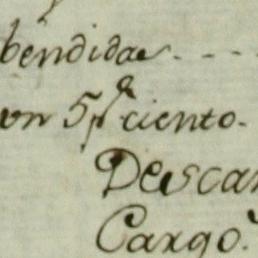 bendidas - - - -
un 5 p.r ciento.
Descar
Cargo.